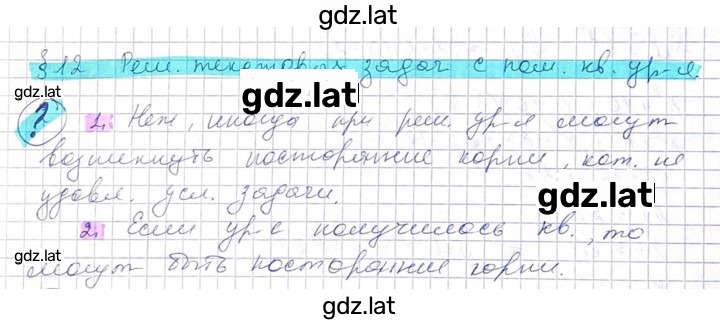 gdz.lat
§12 Реш. текстовых задач с пом. кв. ур-я.
gdz.lat
gdz.lat
? 1. Нет, иногда при реш. ур-я могут
возникнуть посторонние корни, кот. не
удовл. усл. задачи.
gdz.lat
gdz.lat
2. Если ур-е получилось кв., то
могут быть посторонние горни.
gdz.lat
gdz.lat